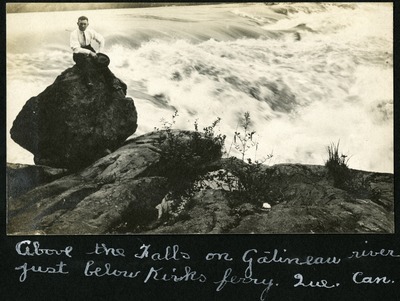 Above the Falls on Gatineau river
just below Kirks ferry. Que. Can.